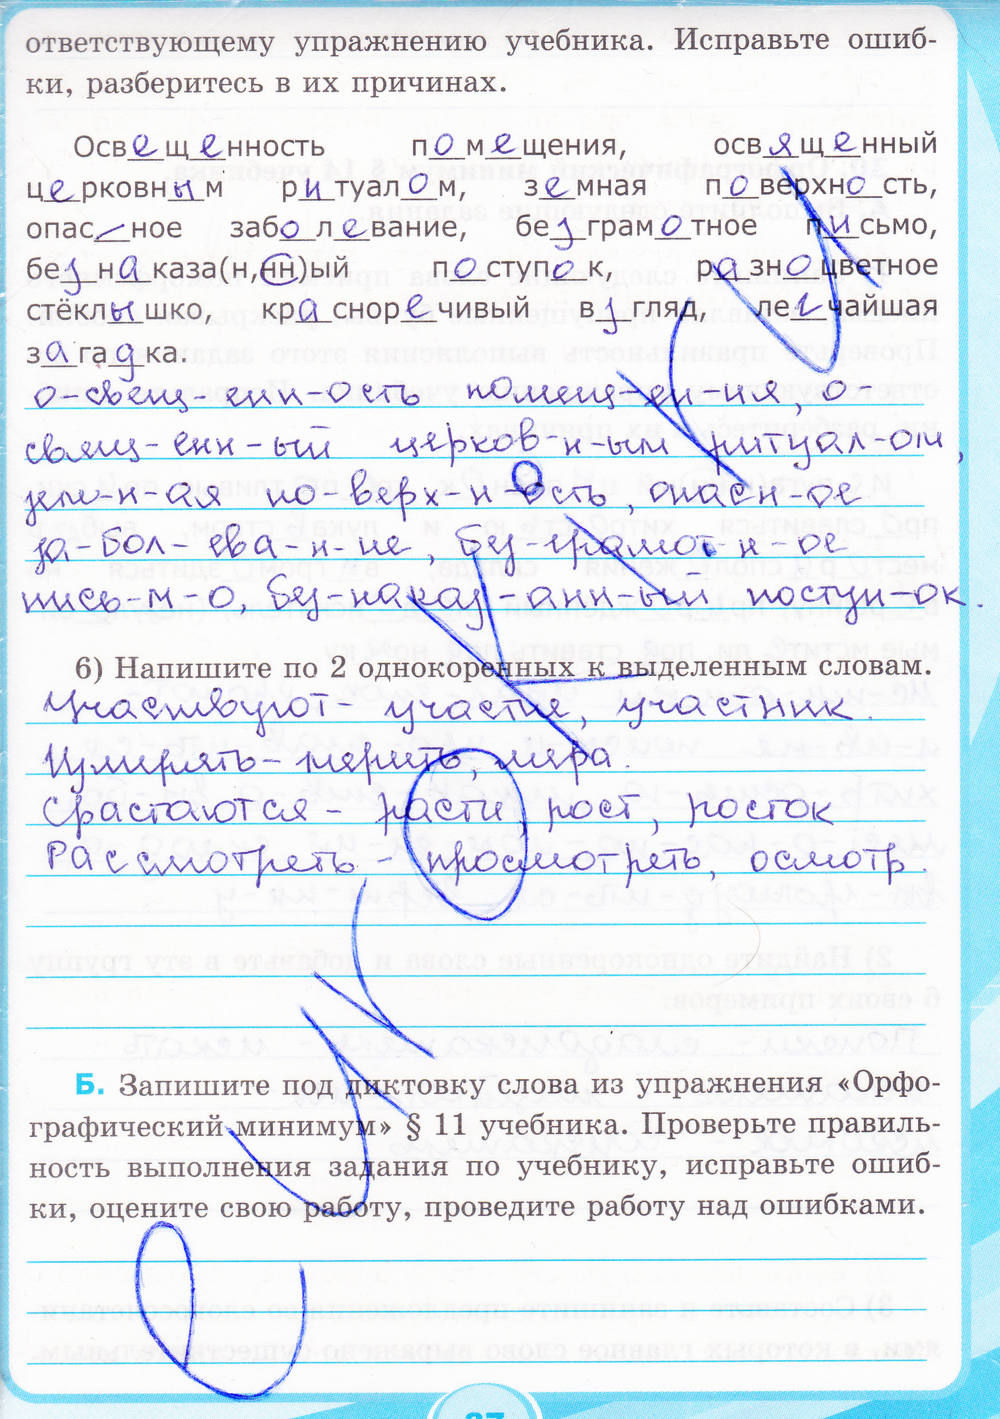 ответствующему упражнению учебника. Исправьте ошиб-
ки, разберитесь в их причинах.
Освещенность помещения, освященный
церковным ритуалом, земная поверхность,
опасное заболевание, безграмотное письмо,
безнаказа(н,нн)ый поступок, разноцветное
стёклышко, красноречивый взгляд, легчайшая
загадка.
о-свещ-енн-ость помещ-ен-ия, о
свящ-енн-ый церков-н-ым ритуал-ом,
зем-н-ая по-верх-н-ость, опасн-ое
за-бол-ева-н-ие, без-грамот-н-ое
пись-м-о, без-наказ-анн-ый поступ-ок.
6) Напишите по 2 однокоренных к выделенным словам.
Участвуют- участие, участник.
Измерять- мерить, мера.
Срастаются - расти, рост, росток
Рассмотреть - просмотреть, осмотр.
Б. Запишите под диктовку слова из упражнения «Орфо-
графический минимум» § 11 учебника. Проверьте правиль-
ность выполнения задания по учебнику, исправьте ошиб-
ки, оцените свою работу, проведите работу над ошибками.